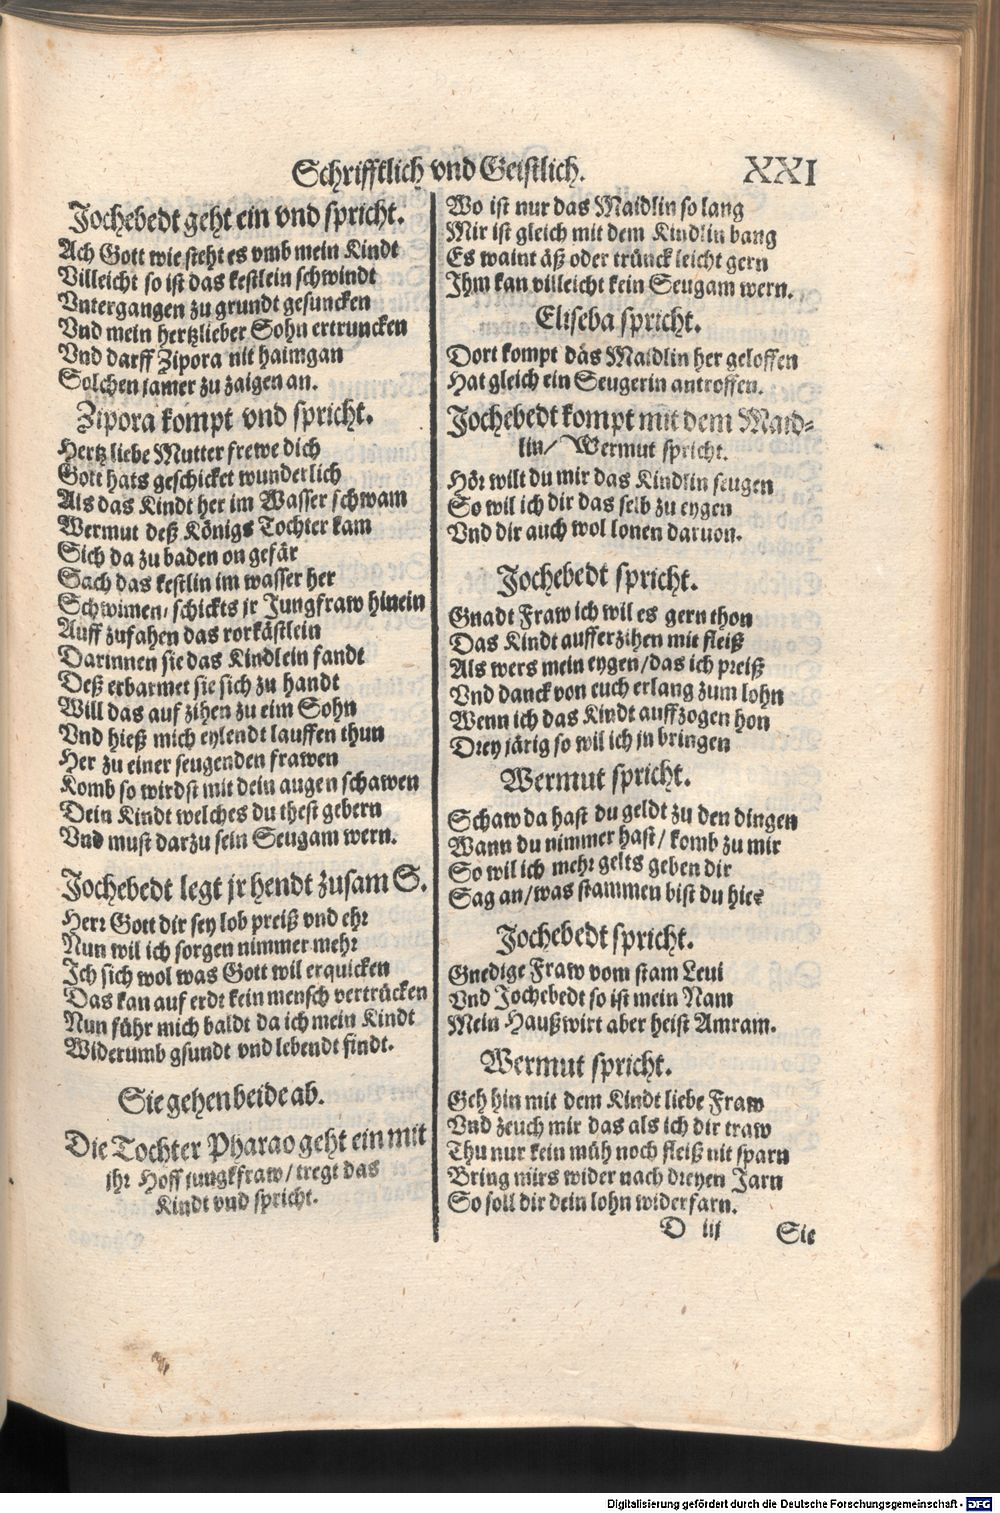 Schrifftlich vnd Geistlich. XXI
Jochebedt geht ein vnd spricht.
Ach Gott wie steht es vmb mein Kindt
Villeicht so ist das kestlein schwindt
Vntergangen zu grundt gesuncken
Vnd mein hertzlieber Sohn ertruncken
Vnd darff Zipora nit haimgan
Solchen jamer zu zaigen an.
Zipora kompt vnd spricht.
Hertz liebe Mutter frewe dich
Gott hats geschicket wunderlich
Als das Kindt her im Wasser schwam
Wermut deß Königs Tochter kam
Sich da zu baden on gefär
Sach das kestlin im wasser her
Schwimen/ schickts jr Jungfraw hinein
Auff zufahen das rorkästlein
Darinnen sie das Kindlein fandt
Deß erbarmet sie sich zu handt
Will das auf zihen zu eim Sohn
Vnd hieß mich eylendt lauffen thun
Her zu einer seugenden frawen
Komb so wirdst mit dein augen schawen
Dein Kindt welches du thest gebern
Vnd must darzu sein Seugam wern.
Jochebedt legt jr hendt zusam S.
Herr Gott dir sey lob preiß vnd ehr
Nun wil ich sorgen nimmer mehr
Ich sich wol was Gott wil erquicken
Das kan auf erdt kein mensch vertrücken
Nun führ mich baldt da ich mein Kindt
Widerumb gsundt vnd lebendt findt.
Sie gehen beide ab.
Die Tochter Pharao geht ein mit
ihr Hoff jungkfraw/ tregt das
Kindt vnd spricht.
Wo ist nur das Maidlin so lang
Mir ist gleich mit dem Kindlin bang
Es waint äß oder trünck leicht gern
Ihm kan villeicht kein Seugam wern.
Eliseba spricht.
Dort kompt das Maidlin her geloffen
Hat gleich ein Seugerin antroffen.
Jochebedt kompt mit dem Maid-
lin/ Wermut spricht.
Hör wilt du mir das Kindlin seugen
So wil ich dir das selb zu eygen
Vnd dir auch wol lonen daruon.
Jochebedt spricht.
Gnadt Fraw ich wil es gern thon
Das Kindt aufferzihen mit fleiß
Als wers mein eygen/ das ich preiß
Vnd danck von euch erlang zum lohn
Wenn ich das Kindt auffzogen hon
Drey järig so wil ich jn bringen
Wermut spricht.
Schaw da hast du geldt zu den dingen
Wann du nimmer hast/ komb zu mir
So wil ich mehr gelts geben dir
Sag an/ was stammen bist du hier
Jochebedt spricht.
Gnedige Fraw vom stam Leui
Vnd Jochebedt so ist mein Nam
Mein Haußwirt aber heist Amram.
Wermut spricht.
Geh hin mit dem Kindt liebe Fraw
Vnd zeuch mir das als ich dir traw
Thu nur kein müh noch fleiß nit sparn
Bring mirs wider nach dreyen Jarn
So soll dir dein lohn widerfarn.
D iij Sie
Digitalisierung gefördert durch die Deutsche Forschungsgemeinschaft - DFG